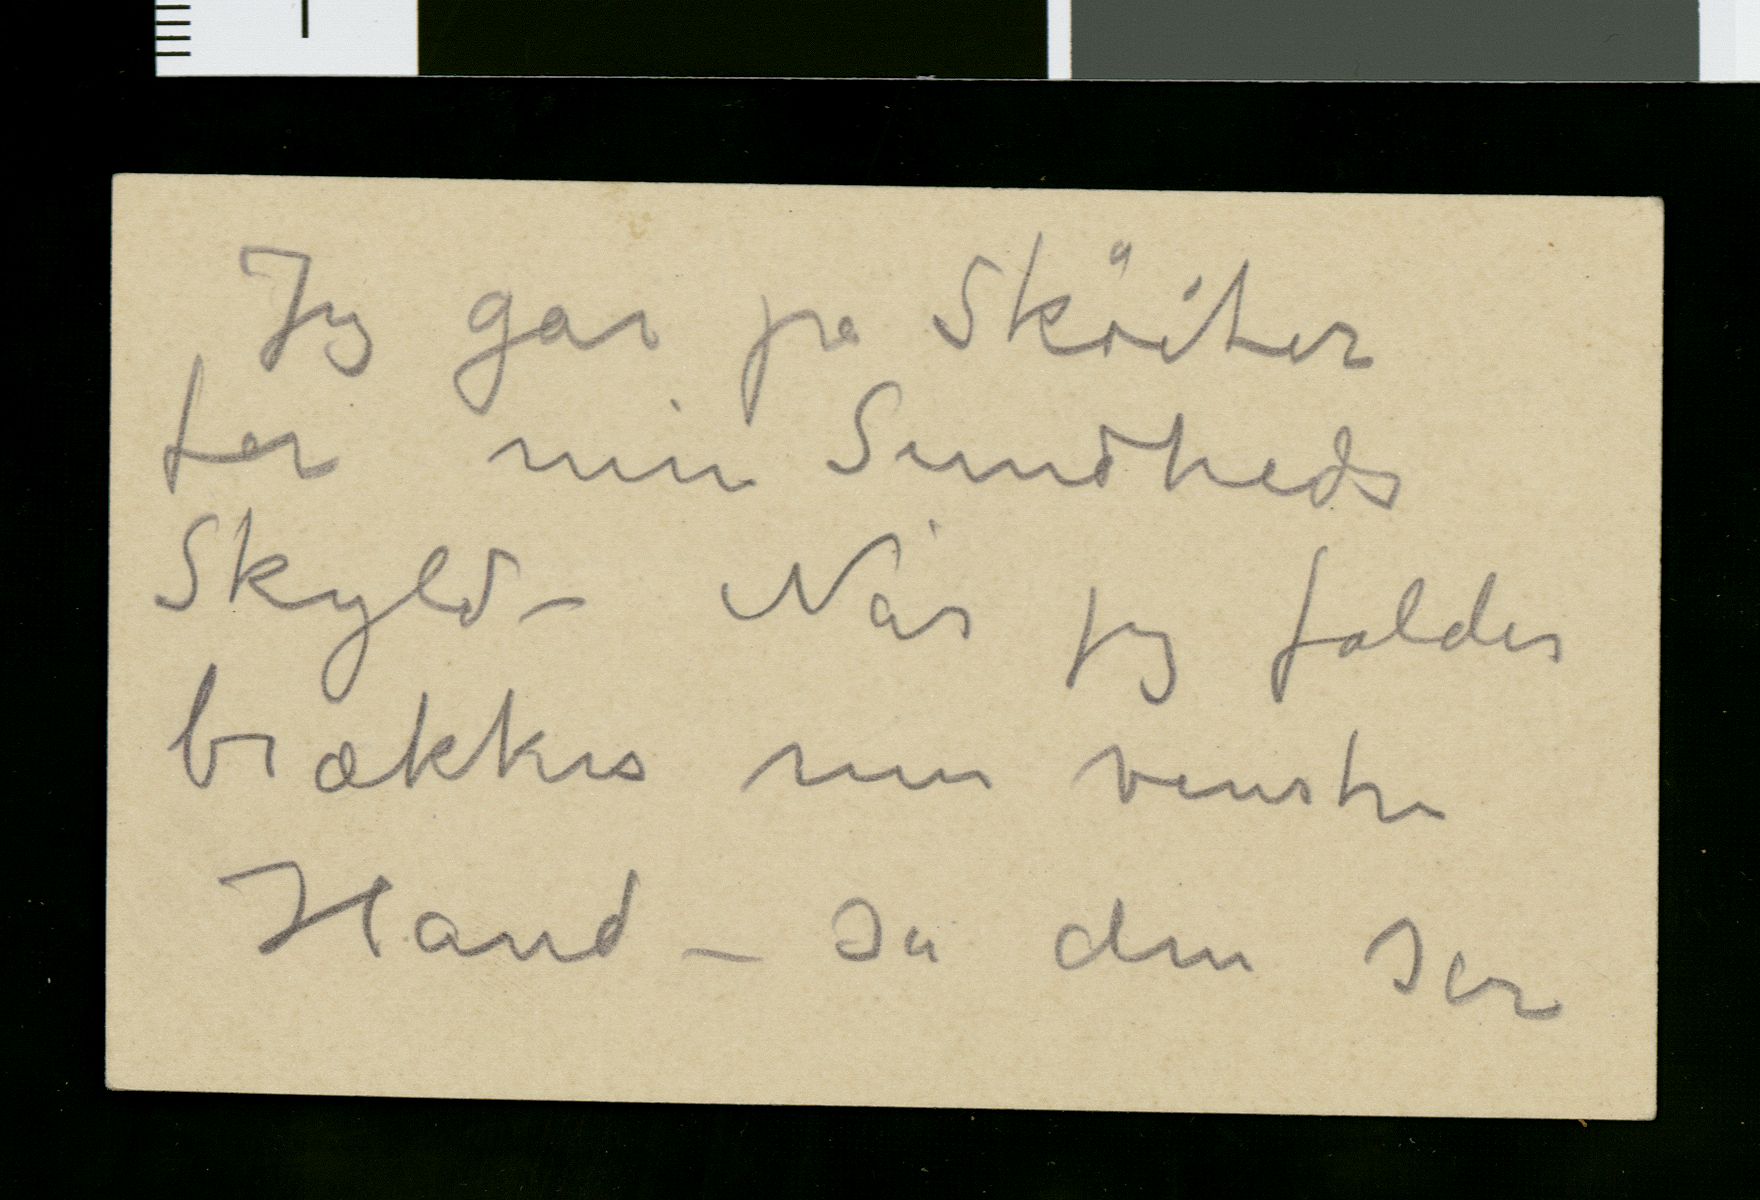 Jeg gar pa Sköiter
for min Sundheds
Skyld – Når jeg falder
brækkes min venstre
Hand – så den ser